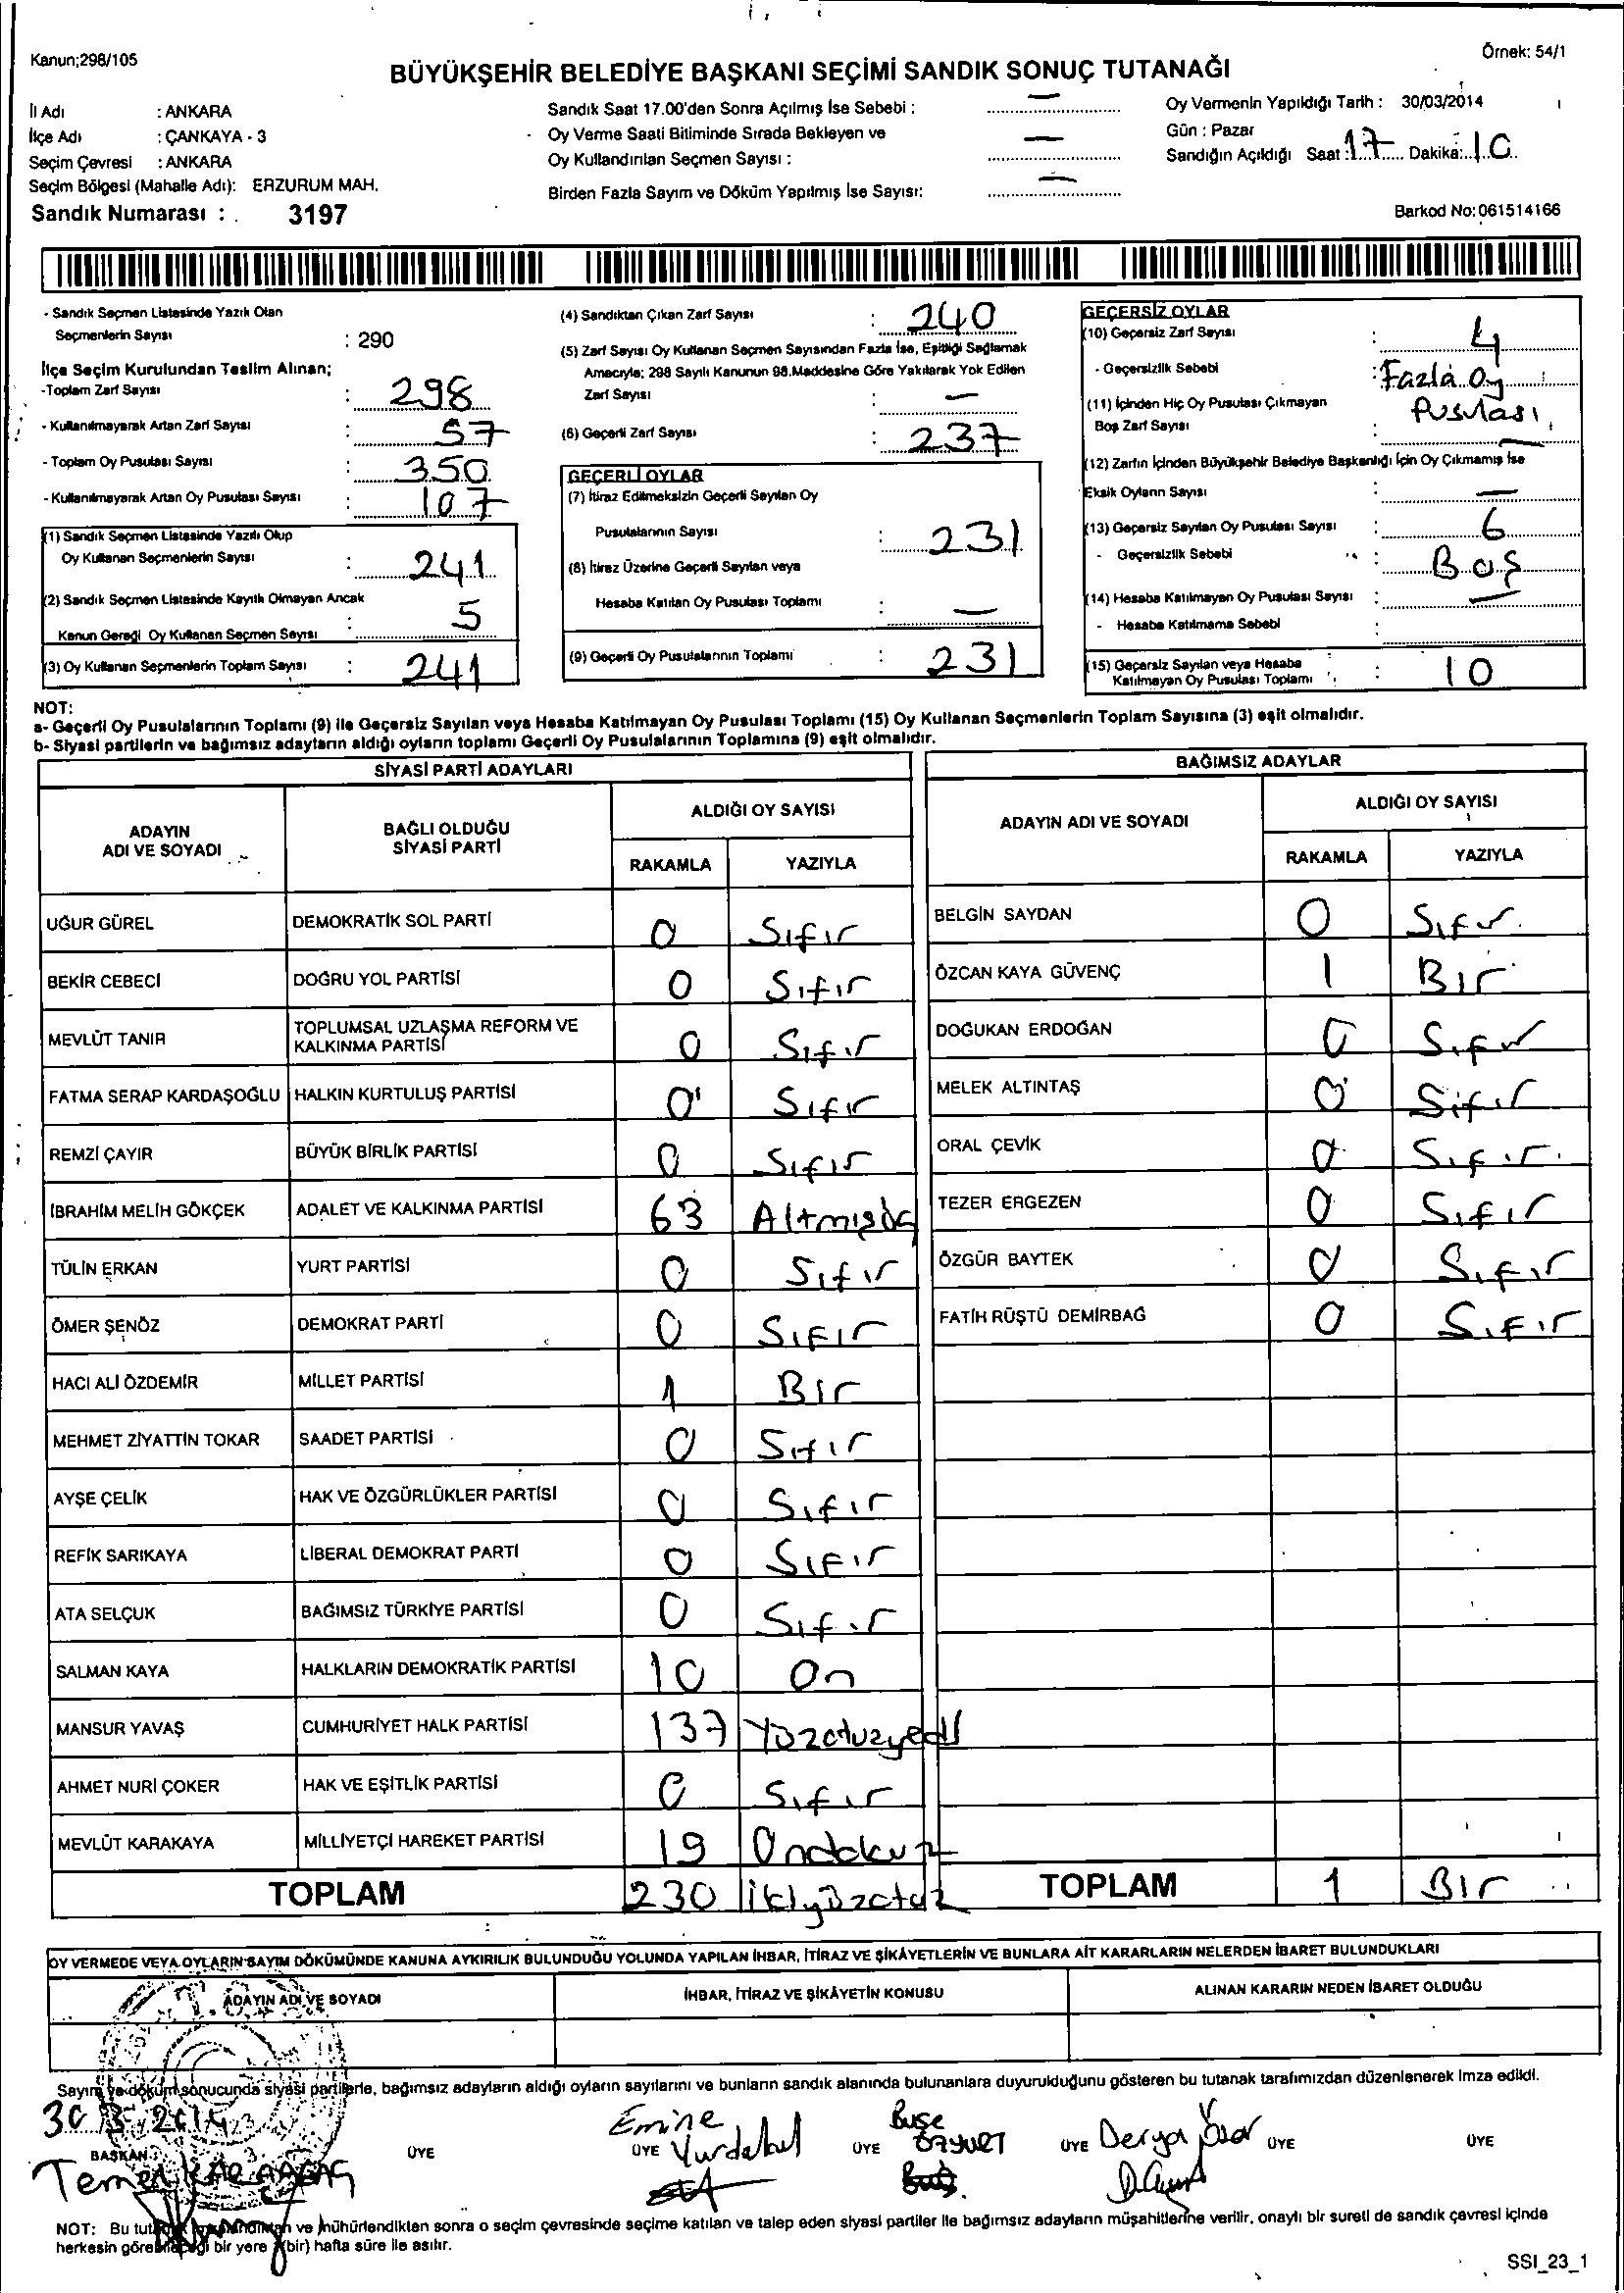 Kanun;298/105
Örnek: 54/1
BÜYÜKŞEHİR BELEDİYE BAŞKANI SEÇİMİ SANDIK SONUÇ TUTANAĞI
İl Adı : ANKARA
İlçe Adı : ÇANKAYA - 3
Seçim Çevresi : ANKARA
Seçim Bölgesi (Mahalle Adı): ERZURUM MAH.
Sandık Numarası : 3197
Sandık Saat 17.00'den Sonra Açılmış İse Sebebi : —
Oy Verme Saati Bitiminde Sırada Bekleyen ve
Oy Kullandırılan Seçmen Sayısı : —
Birden Fazla Sayım ve Döküm Yapılmış İse Sayısı: —
Oy Vermenin Yapıldığı Tarih : 30/03/2014
Gün : Pazar
Sandığın Açıldığı Saat : 17 Dakika: 10
Barkod No: 061514166
- Sandık Seçmen Listesinde Yazılı Olan
Seçmenlerin Sayısı : 290
İlçe Seçim Kurulundan Teslim Alınan;
-Toplam Zarf Sayısı : 298
- Kullanılmayarak Artan Zarf Sayısı : 57
- Toplam Oy Pusulası Sayısı : 350
- Kullanılmayarak Artan Oy Pusulası Sayısı : 107
(1) Sandık Seçmen Listesinde Yazılı Olup
Oy Kullanan Seçmenlerin Sayısı : 241
(2) Sandık Seçmen Listesinde Kayıtlı Olmayan Ancak
Kanun Gereği Oy Kullanan Seçmen Sayısı : 5
(3) Oy Kullanan Seçmenlerin Toplam Sayısı : 241
(4) Sandıktan Çıkan Zarf Sayısı : 240
(5) Zarf Sayısı Oy Kullanan Seçmen Sayısından Fazla İse, Eşitliği Sağlamak
Amacıyla; 298 Sayılı Kanunun 98.Maddesine Göre Yakılarak Yok Edilen
Zarf Sayısı : —
(6) Geçerli Zarf Sayısı : 237
GEÇERLİ OYLAR
(7) İtiraz Edilmeksizin Geçerli Sayılan Oy
Pusulalarının Sayısı : 231
(8) İtiraz Üzerine Geçerli Sayılan veya
Hesaba Katılan Oy Pusulası Toplamı : —
(9) Geçerli Oy Pusulalarının Toplamı : 231
GEÇERSİZ OYLAR
(10) Geçersiz Zarf Sayısı : 4
- Geçersizlik Sebebi : Fazla Oy
Pusulası
(11) İçinden Hiç Oy Pusulası Çıkmayan
Boş Zarf Sayısı : —
(12) Zarfın İçinden Büyükşehir Belediye Başkanlığı İçin Oy Çıkmamış İse
Eksik Oyların Sayısı : —
(13) Geçersiz Sayılan Oy Pusulası Sayısı : 6
- Geçersizlik Sebebi : Boş
(14) Hesaba Katılmayan Oy Pusulası Sayısı : —
- Hesaba Katılmama Sebebi :
(15) Geçersiz Sayılan veya Hesaba
Katılmayan Oy Pusulası Toplamı : 10
NOT:
a- Geçerli Oy Pusulalarının Toplamı (9) ile Geçersiz Sayılan veya Hesaba Katılmayan Oy Pusulası Toplamı (15) Oy Kullanan Seçmenlerin Toplam Sayısına (3) eşit olmalıdır.
b- Siyasi partilerin ve bağımsız adayların aldığı oyların toplamı Geçerli Oy Pusulalarının Toplamına (9) eşit olmalıdır.
SİYASİ PARTİ ADAYLARI
ADAYIN ADI VE SOYADI BAĞLI OLDUĞU SİYASİ PARTİ ALDIĞI OY SAYISI
RAKAMLA YAZIYLA
UĞUR GÜREL DEMOKRATİK SOL PARTİ 0 Sıfır
BEKİR CEBECİ DOĞRU YOL PARTİSİ 0 Sıfır
MEVLÜT TANIR TOPLUMSAL UZLAŞMA REFORM VE KALKINMA PARTİSİ 0 Sıfır
FATMA SERAP KARDAŞOĞLU HALKIN KURTULUŞ PARTİSİ 0 Sıfır
REMZİ ÇAYIR BÜYÜK BİRLİK PARTİSİ 0 Sıfır
İBRAHİM MELİH GÖKÇEK ADALET VE KALKINMA PARTİSİ 63 Altmışüç
TÜLİN ERKAN YURT PARTİSİ 0 Sıfır
ÖMER ŞENÖZ DEMOKRAT PARTİ 0 Sıfır
HACI ALİ ÖZDEMİR MİLLET PARTİSİ 1 Bir
MEHMET ZİYATTİN TOKAR SAADET PARTİSİ 0 Sıfır
AYŞE ÇELİK HAK VE ÖZGÜRLÜKLER PARTİSİ 0 Sıfır
REFİK SARIKAYA LİBERAL DEMOKRAT PARTİ 0 Sıfır
ATA SELÇUK BAĞIMSIZ TÜRKİYE PARTİSİ 0 Sıfır
SALMAN KAYA HALKLARIN DEMOKRATİK PARTİSİ 10 On
MANSUR YAVAŞ CUMHURİYET HALK PARTİSİ 137 Yüzotuzyedi
AHMET NURİ ÇOKER HAK VE EŞİTLİK PARTİSİ 0 Sıfır
MEVLÜT KARAKAYA MİLLİYETÇİ HAREKET PARTİSİ 19 Ondokuz
TOPLAM 230 İkiyüzotuz
BAĞIMSIZ ADAYLAR
ADAYIN ADI VE SOYADI ALDIĞI OY SAYISI
RAKAMLA YAZIYLA
BELGİN SAYDAN 0 Sıfır
ÖZCAN KAYA GÜVENÇ 1 Bir
DOĞUKAN ERDOĞAN 0 Sıfır
MELEK ALTINTAŞ 0 Sıfır
ORAL ÇEVİK 0 Sıfır
TEZER ERGEZEN 0 Sıfır
ÖZGÜR BAYTEK 0 Sıfır
FATİH RÜŞTÜ DEMİRBAĞ 0 Sıfır
TOPLAM 1 Bir
OY VERMEDE VEYA OYLARIN SAYIM DÖKÜMÜNDE KANUNA AYKIRILIK BULUNDUĞU YOLUNDA YAPILAN İHBAR, İTİRAZ VE ŞİKÂYETLERİN VE BUNLARA AİT KARARLARIN NELERDEN İBARET BULUNDUKLARI
ADAYIN ADI VE SOYADI İHBAR, İTİRAZ VE ŞİKÂYETİN KONUSU ALINAN KARARIN NEDEN İBARET OLDUĞU
Sayım ve döküm sonucunda siyasi partilerle, bağımsız adayların aldığı oyların sayılarını ve bunların sandık alanında bulunanlara duyurulduğunu gösteren bu tutanak tarafımızdan düzenlenerek imza edildi.
30/3/2014
BAŞKAN ÜYE ÜYE Emine Yurdakul ÜYE Buse ÖZYURT ÜYE Derya ÜYE ÜYE
NOT: Bu tutanak ve mühürlendikten sonra o seçim çevresinde seçime katılan ve talep eden siyasi partiler ile bağımsız adayların müşahitlerine verilir, onaylı bir sureti de sandık çevresi içinde
herkesin görebileceği bir yere (bir) hafta süre ile asılır.
SSI_23_1